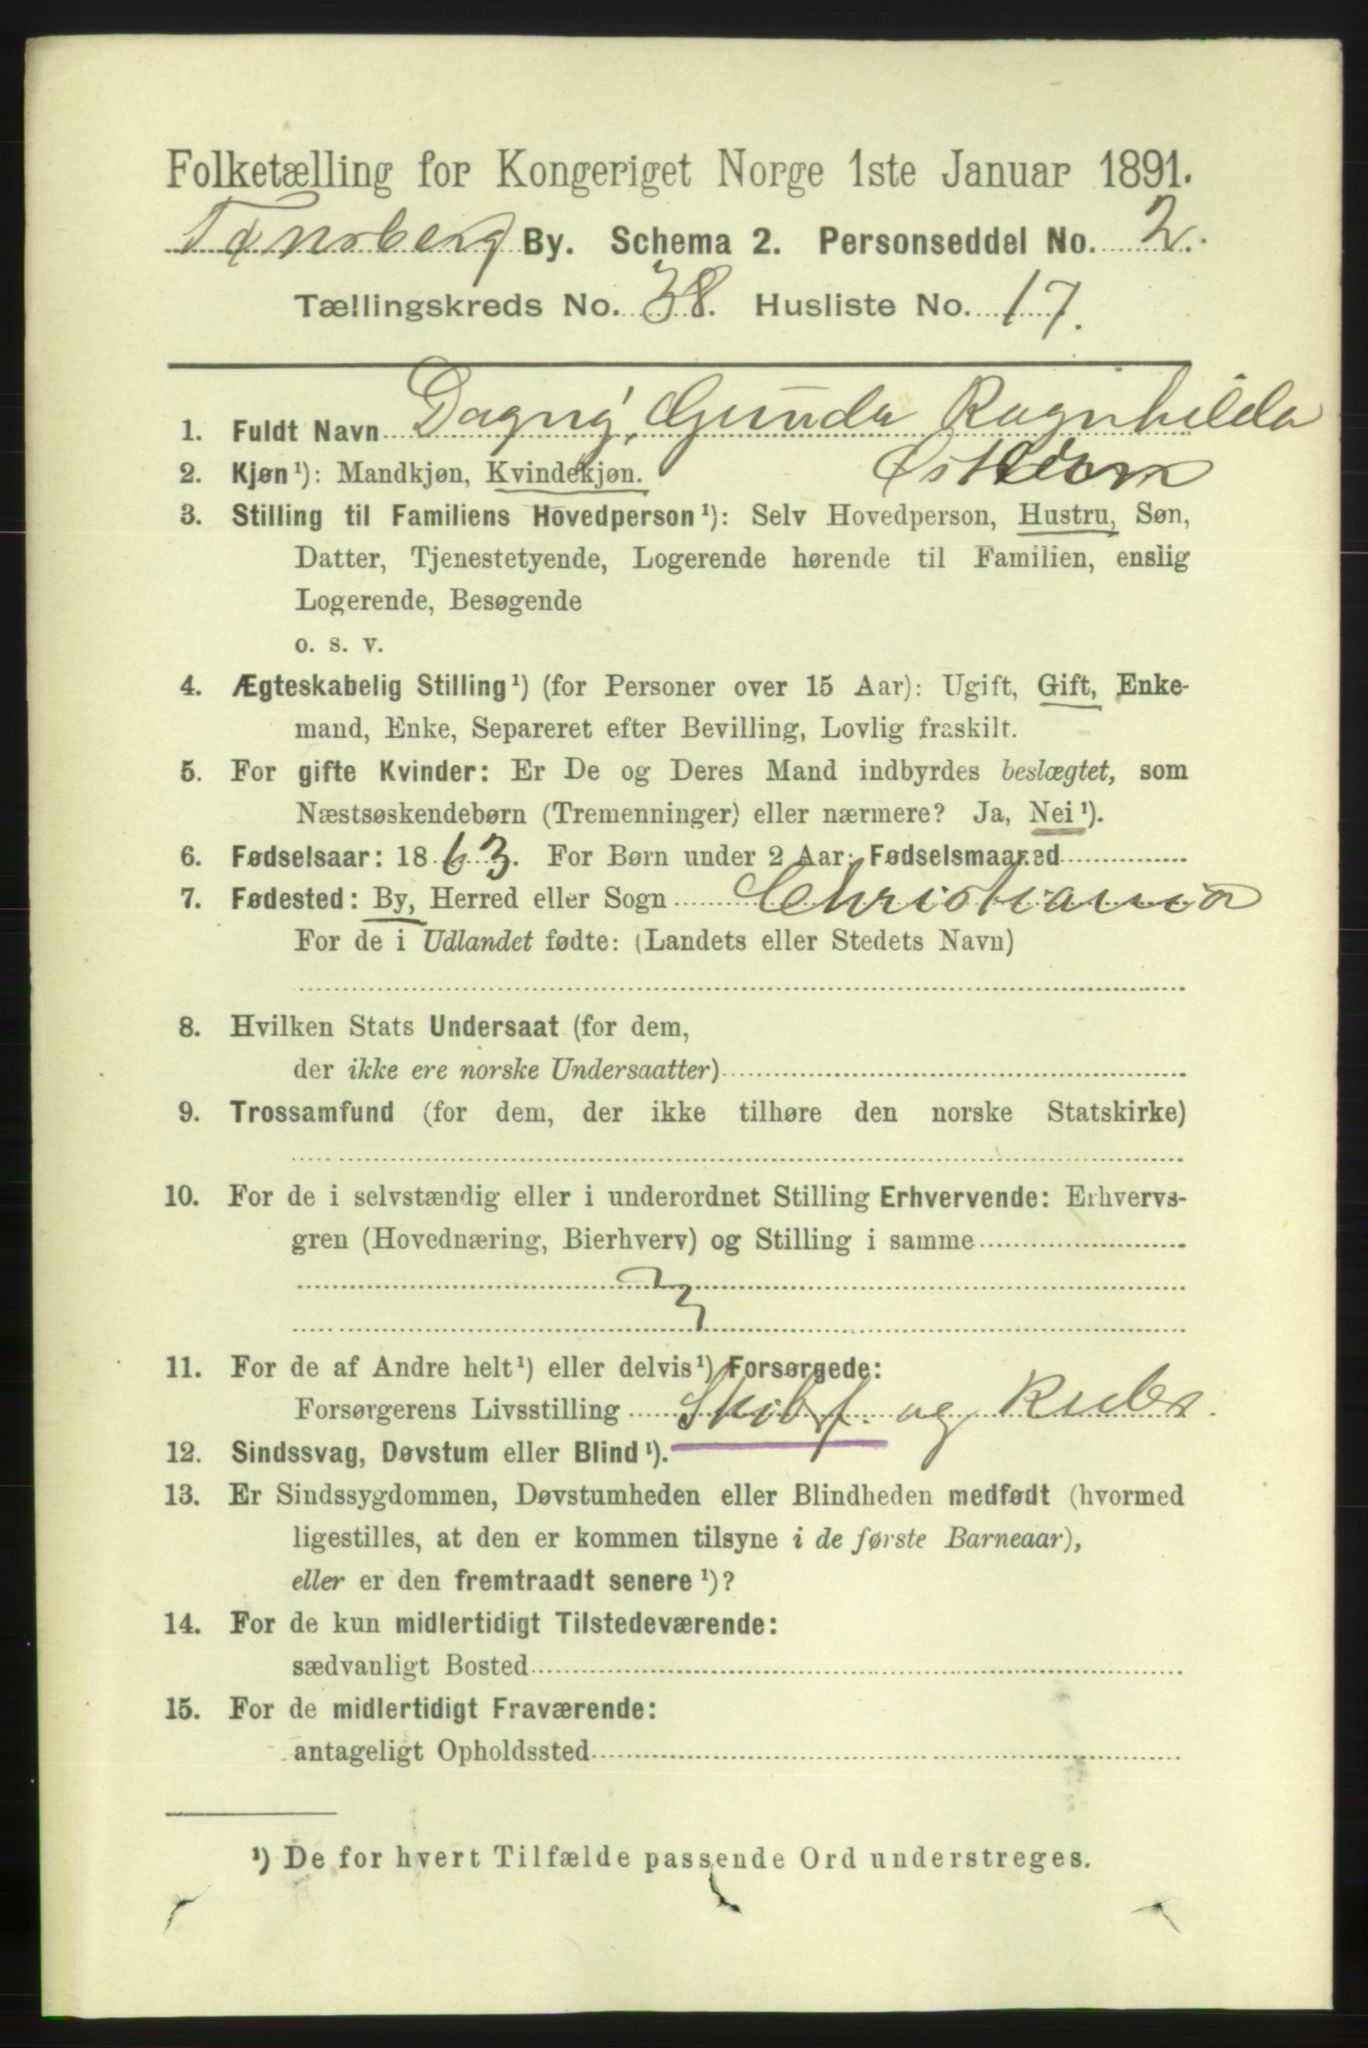 Folketælling for Kongeriget Norge 1ste Januar 1891.
Tønsberg By. Schema 2. Personseddel No. 2.
Tællingskreds No. 38. Husliste No. 17.
1. Fuldt Navn Dagny, Gunda Ragnhilda
2. Kjøn¹): Mandkjøn, Kvindekjøn.
3. Stilling til Familiens Hovedperson¹): Selv Hovedperson, Hustru, Søn,
Datter, Tjenestetyende, Logerende hørende til Familien, enslig
Logerende, Besøgende
o. s. v.
4. Ægteskabelig Stilling¹) (for Personer over 15 Aar): Ugift, Gift, Enke-
mand, Enke, Separeret efter Bevilling, Lovlig fraskilt.
5. For gifte Kvinder: Er De og Deres Mand indbyrdes beslægtet, som
Næstsøskendebørn (Tremenninger) eller nærmere? Ja, Nei¹).
6. Fødselsaar: 1863. For Børn under 2 Aar: Fødselsmaaned
7. Fødested: By, Herred eller Sogn Christiania
For de i Udlandet fødte: (Landets eller Stedets Navn)
8. Hvilken Stats Undersaat (for dem,
der ikke ere norske Undersaatter)
9. Trossamfund (for dem, der ikke tilhøre den norske Statskirke)
10. For de i selvstændig eller i underordnet Stilling Erhvervende: Erhvervs-
gren (Hovednæring, Bierhverv) og Stilling i samme
3
11. For de af Andre helt¹) eller delvis¹) Forsørgede:
Forsørgerens Livsstilling Skibsf. og Reder.
12. Sindssvag, Døvstum eller Blind¹).
13. Er Sindssygdommen, Døvstumheden eller Blindheden medfødt (hvormed
ligestilles, at den er kommen tilsyne i de første Barneaar),
eller er den fremtraadt senere¹)?
14. For de kun midlertidigt Tilstedeværende:
sædvanligt Bosted
15. For de midlertidigt Fraværende:
antageligt Opholdssted
¹) De for hvert Tilfælde passende Ord understreges.